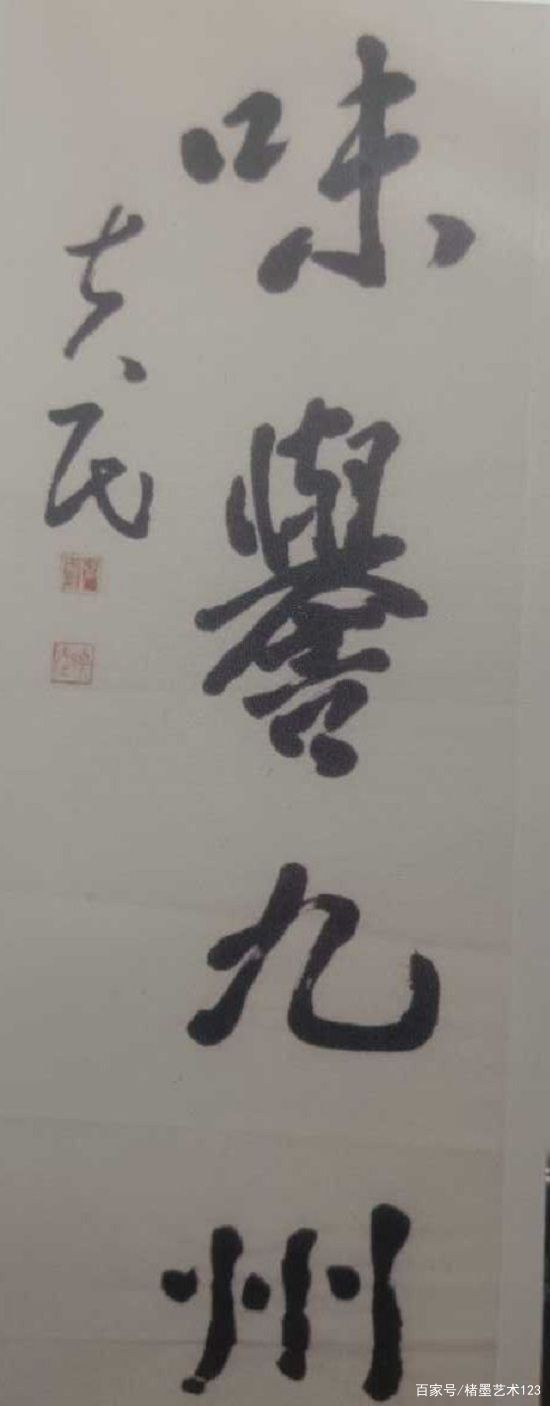 味譽九州
百家号/楮墨艺术123